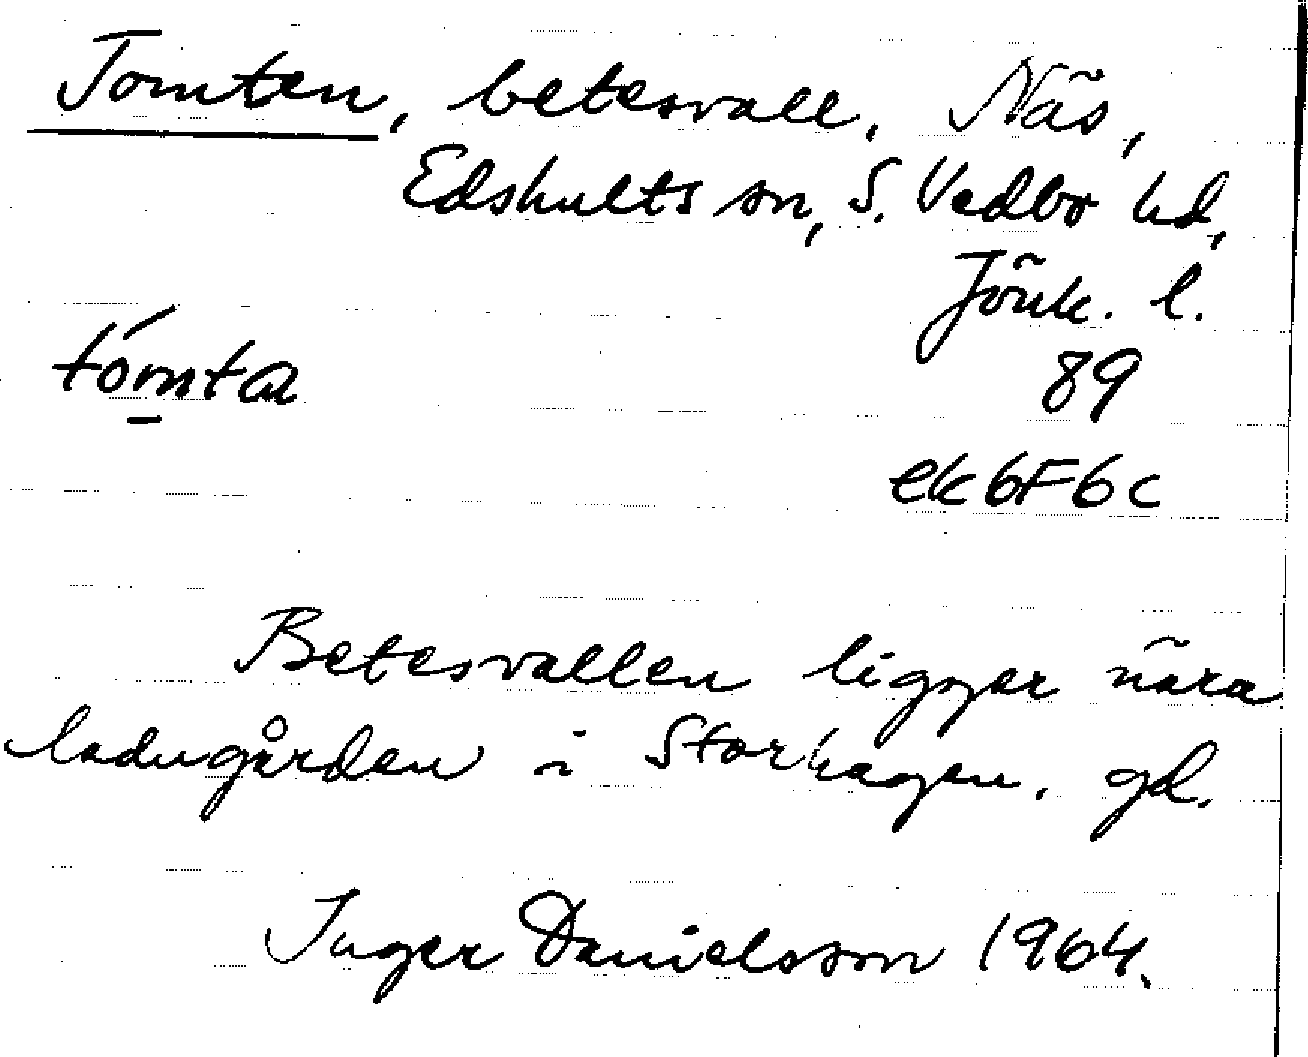 Tomten, betesvall. Näs,
Edshults sn, S. Vedbo hd,
Jönk. l.
tómta
89
ek6F6c
Betesvallen ligger nära
ladugården i Storhagen. gd.
Inger Danielsson 1964.